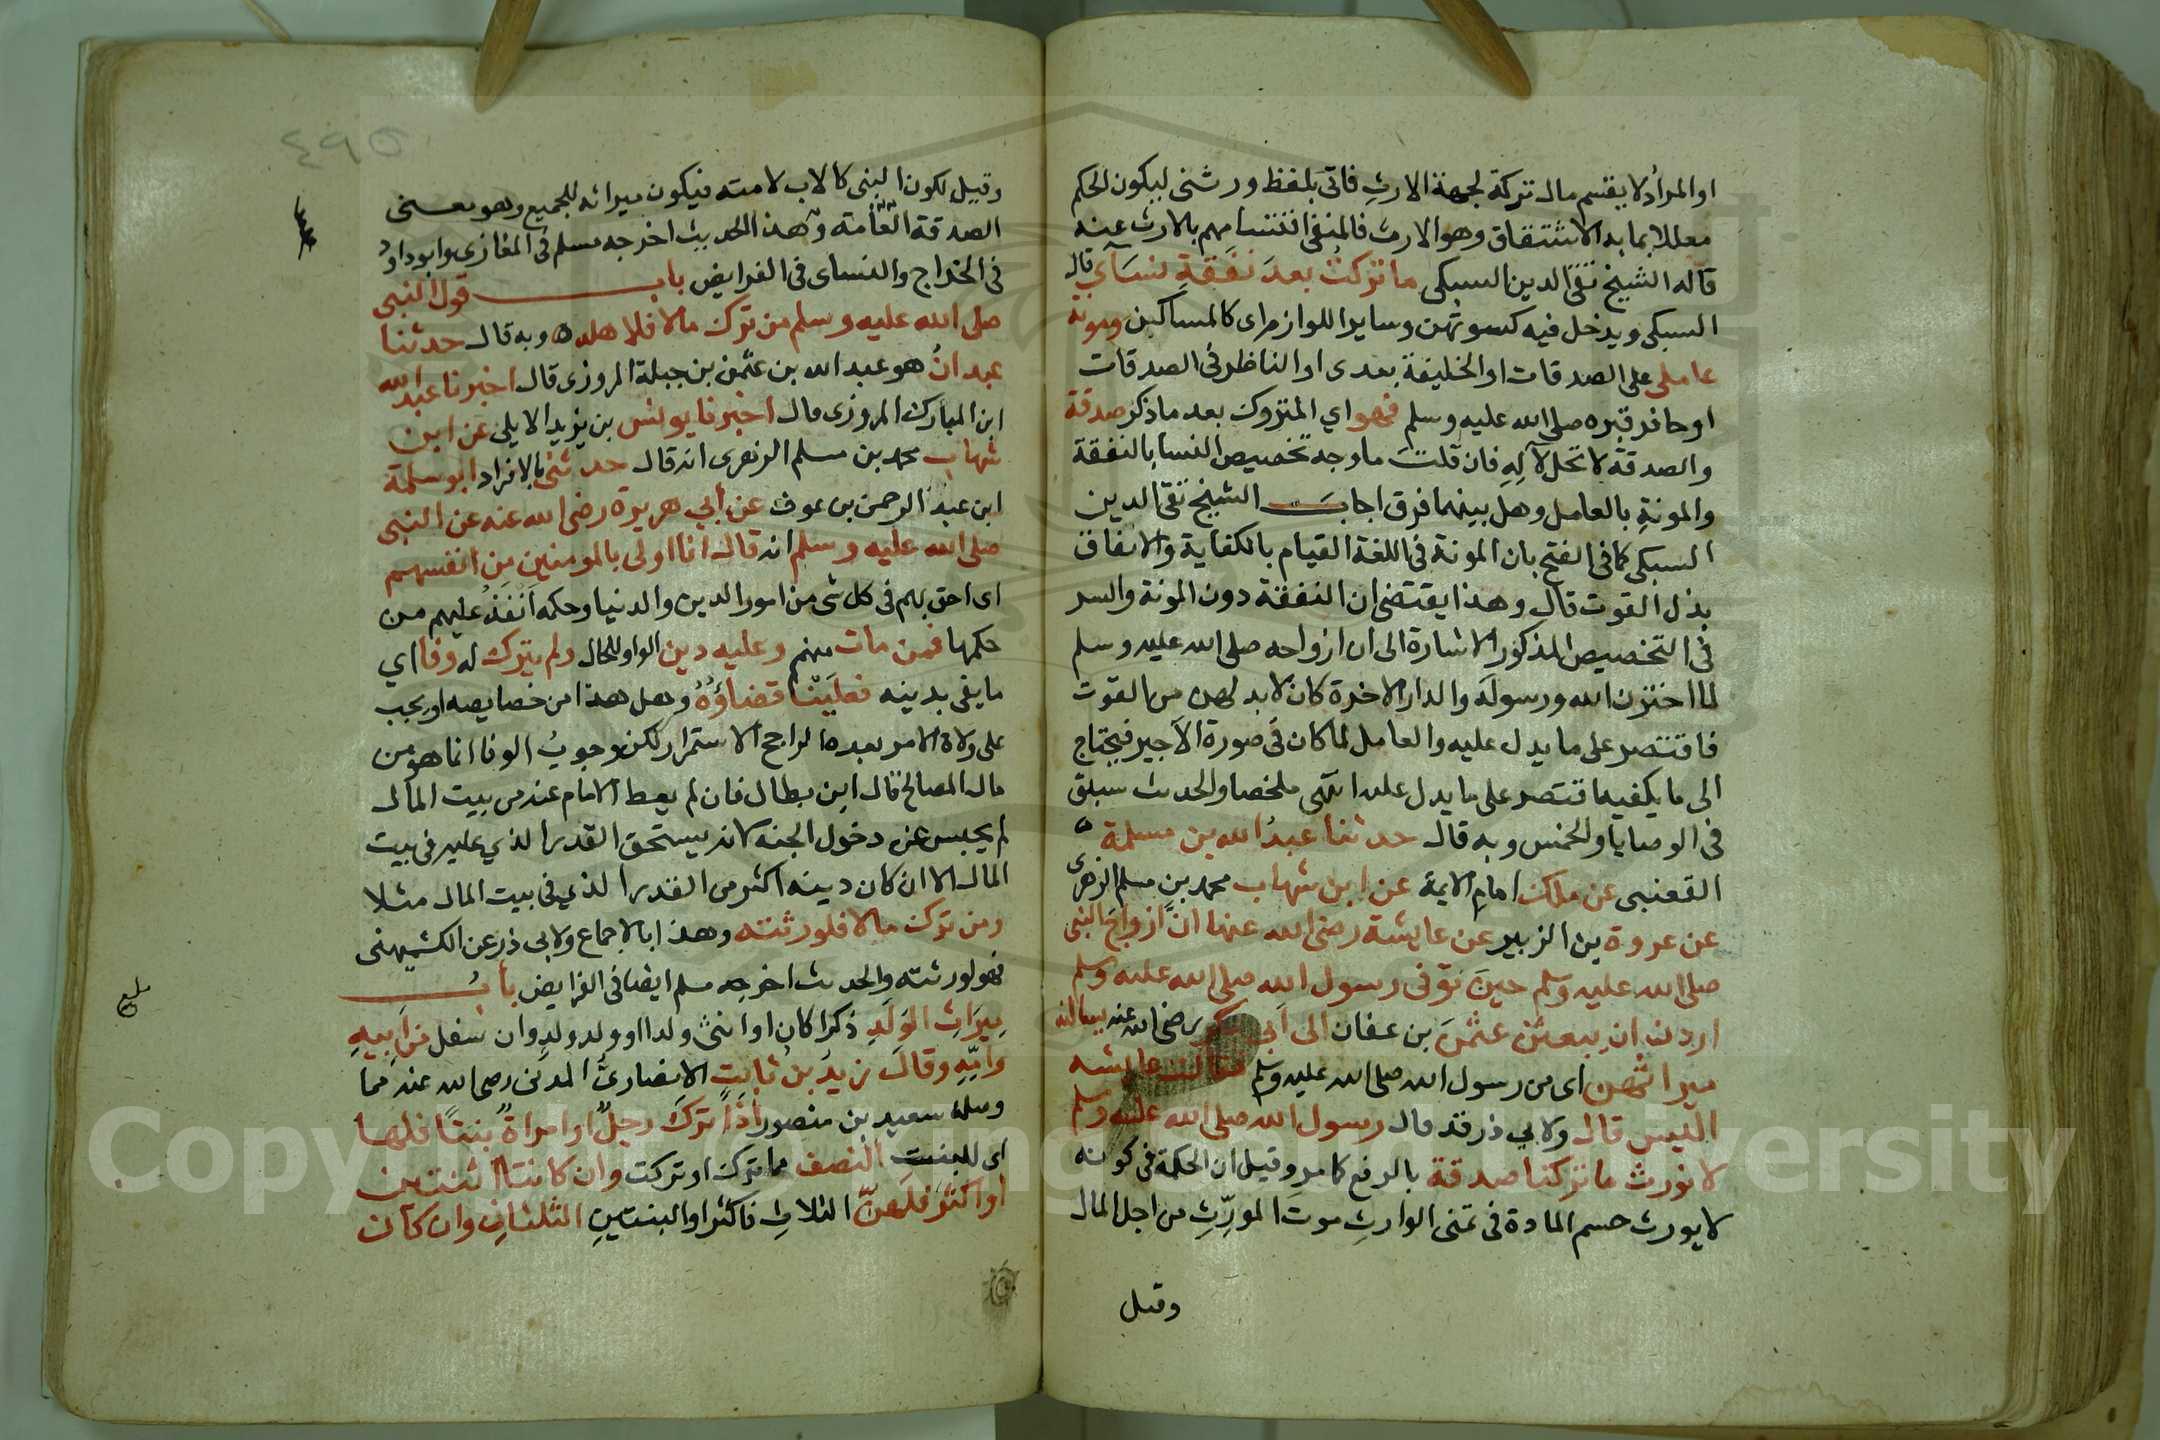 او المراد لا يقسم مال تركة لجهة الارث فاتى بلفظ ورثتى ليكون الحكم
معللا بما به الاشتقاق وهو الارث فالمنفى اقتسامهم بالارث عنه
قاله الشيخ تقى الدين السبكى ما تركت بعد نفقة نسآى قال
السبكى ويدخل فيه كسوتهن وساير اللوازم اى كالمساكين ومونة
عاملى على الصدقات او الخليفة بعدى او الناظر فى الصدقات
او حافر قبره صلى الله عليه وسلم فهو اي المتروك بعد ما ذكر صدقة
والصدقة لا تحل لآله فان قلت ما وجه تخصيص النسا بالنفقة
والمونة بالعامل وهل بينهما فرق اجاب الشيخ تقى الدين
السبكى كما فى الفتح بان المونة فى اللغة القيام بالكفاية والانفاق
بذل القوت قال وهذا يقتضى ان النفقة دون المونة والسر
فى التخصيص المذكور الاشارة الى ان ازواجه صلى الله عليه وسلم
لما اخترن الله ورسوله والدار الاخرة كان لا بد لهن من القوت
فاقتصر على ما يدل عليه والعامل لما كان فى صورة الاجير فيحتاج
الى ما يكفيه اقتصر على ما يدل عليه انتهى ملخصا والحديث سبق
فى الوصايا والخمس وبه قال حدثنا عبد الله بن مسلمة
القعنبى عن ملك امام الايمة عن ابن شهاب محمد بن مسلم الزهرى
عن عروة بن الزبير عن عايشة رضى الله عنها ان ازواج النبى
صلى الله عليه وسلم حين توفى رسول الله صلى الله عليه وسلم
اردن ان يبعثن عثمن بن عفان الى ابى بكر رضى الله عنه يسالنه
ميراثهن اى من رسول الله صلى الله عليه وسلم فقالت عايشه
اليس قال ولابي ذر قد قال رسول الله صلى الله عليه وسلم
لا نورث ما تركنا صدقة بالرفع كما مر وقيل ان الحكمة فى كونه
لا يورث حسم المادة فى تمنى الوارث موت المورث من اجل المال
وقيل
٤٩٥
وقيل لكون النبى كالاب لامته فيكون ميراثه للجميع وهو معنى
الصدقة العامة وهذا الحديث اخرجه مسلم فى المغازى وابو داود
فى الخراج والنساى فى الفرايض باب قول النبى
صلى الله عليه وسلم من ترك مالا فلاهله وبه قال حدثنا
عبدان هو عبد الله بن عثمن بن جبلة المروزى قال اخبرنا عبد الله
ابن المبارك المروزى قال اخبرنا يونس بن يزيد الايلى عن ابن
شهاب محمد بن مسلم الزهرى انه قال حدثنى بالافراد ابو سلمة
ابن عبد الرحمن بن عوف عن أبي هريرة رضى الله عنه عن النبى
صلى الله عليه وسلم انه قال انا اولى بالمومنين من انفسهم
اى احق بهم فى كل شى من امور الدين والدنيا وحكمه انفذ عليهم من
حكمها فمن مات منهم وعليه دين الواو للحال ولم يترك له وفا اي
ما يفى بدينه فعلينا قضاؤه وهل هذا من خصايصه او يجب
على ولاة الامر بعده الراجح الاستمرار لكن وجوب الوفا انما هو من
مال المصالح قال ابن بطال فان لم يعط الامام عنه من بيت المال
لم يحبس عن دخول الجنه لانه يستحق القدر الذي عليه فى بيت
المال الا ان كان دينه اكثر من القدر الذي فى بيت المال مثلا
ومن ترك مالا فلورثته وهذا بالاجماع ولابى ذر عن الكشميهنى
فهو لورثته والحديث اخرجه مسلم ايضا فى الفرايض باب
ميراث الولد ذكرا كان او انثى ولدا او ولد ولد وان سفل من ابيه
وامه وقال زيد بن ثابت الانصارى المدنى رضى الله عنه مما
وصله سعيد بن منصور اذا ترك رجل او امراة بنتا فلها
اى للبنت النصف مما ترك او تركت وان كانتا اثنتين
او اكثر فلهن الثلاث فاكثر او البنتين الثلثان وان كان
Copyright © King Saud University